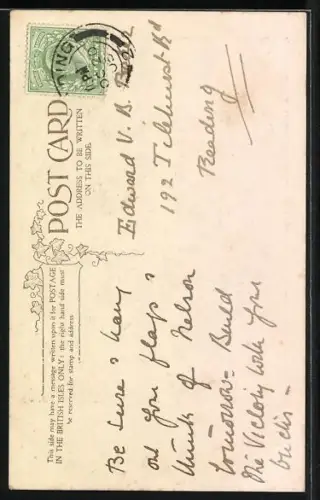 POST CARD
THE ADDRESS TO BE WRITTEN
ON THIS SIDE.
This side may have a message written upon it for POSTAGE
IN THE BRITISH ISLES ONLY: the right hand side must
be reserved for stamp and address
Be sure & hang
out your flags &
think of Nelson
tomorrow = Build
The Victory with your
bricks -
Edward V. B.
192 Tilehurst Rd
Reading